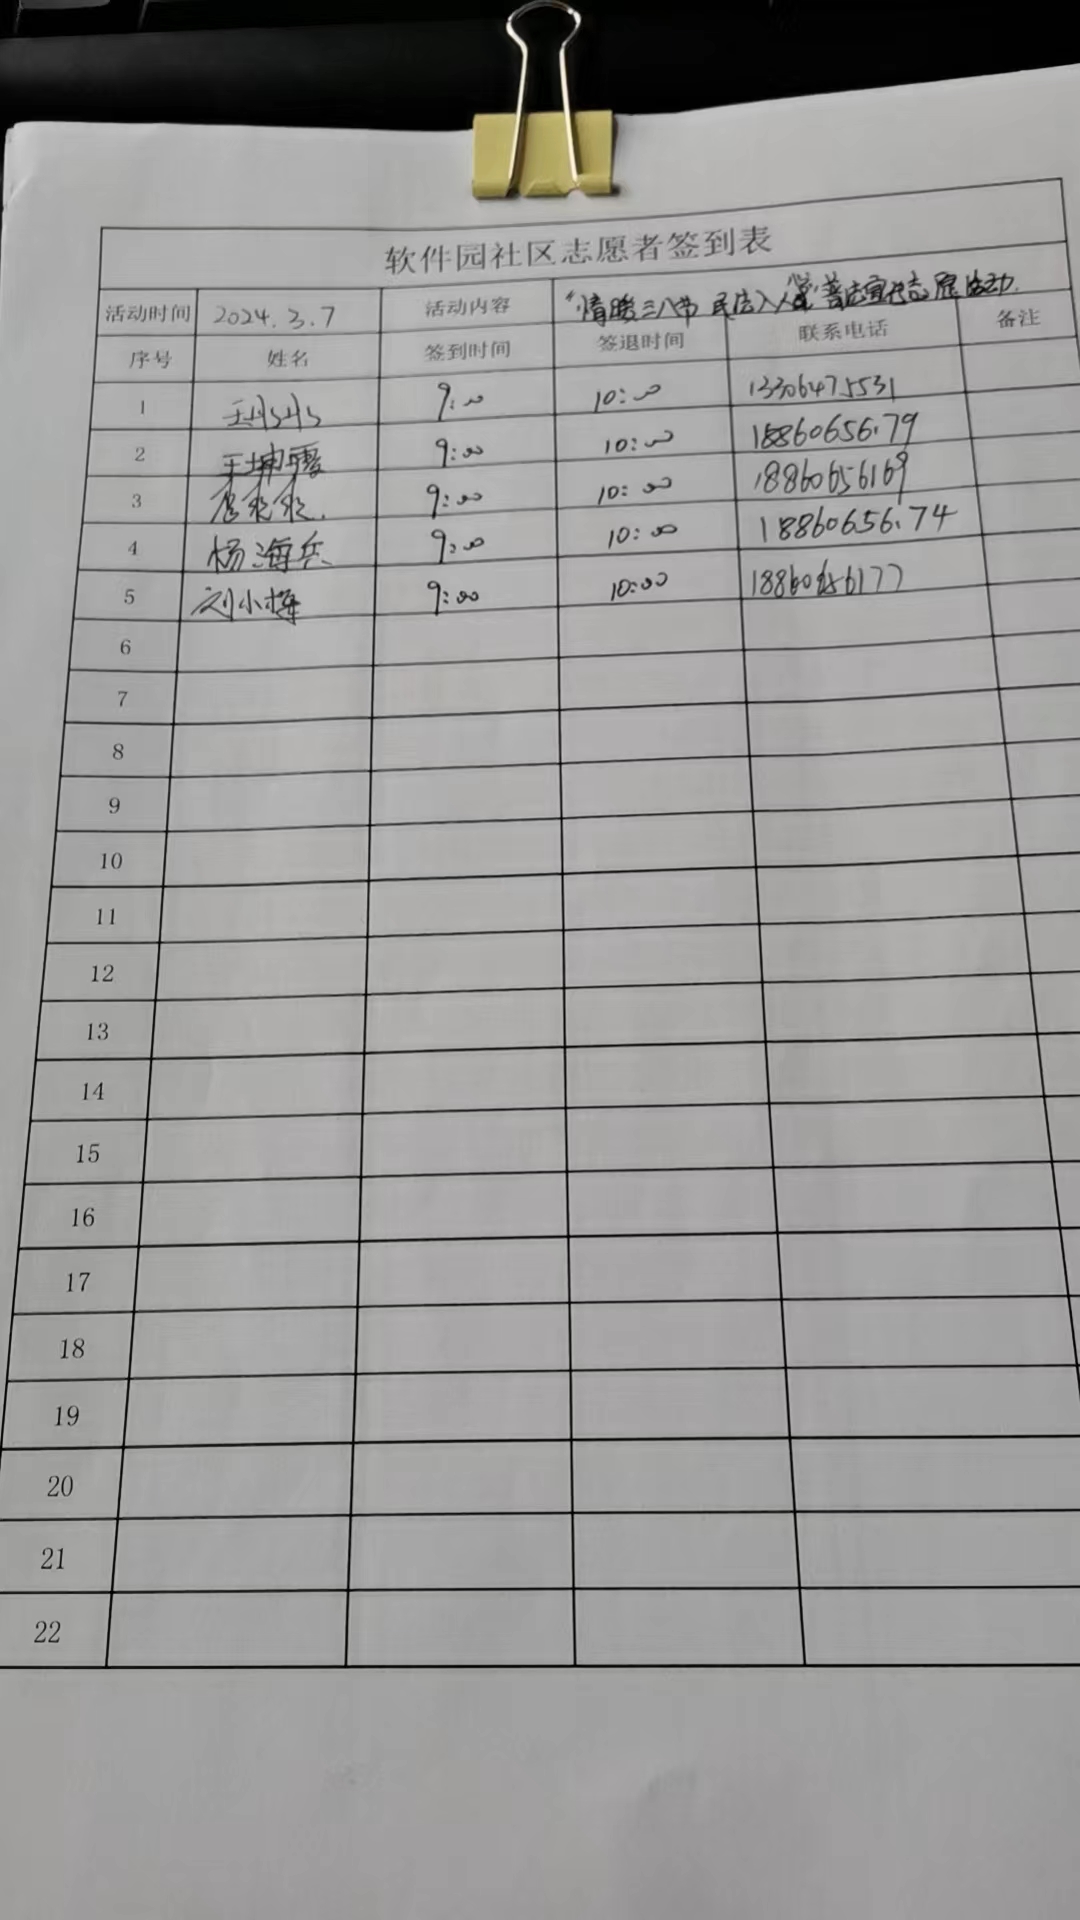 软件园社区志愿者签到表
活动时间 2024.3.7 活动内容 "情暖三八节 民法入人心"普法宣传志愿活动.
序号 姓名 签到时间 签退时间 联系电话 备注
1 9:00 10:00 13306475531
2 王坤霞 9:00 10:00 18860656179
3 9:00 10:00 18860656169
4 杨海兵 9:00 10:00 18860656174
5 刘小梅 9:00 10:00 18860656177
6
7
8
9
10
11
12
13
14
15
16
17
18
19
20
21
22